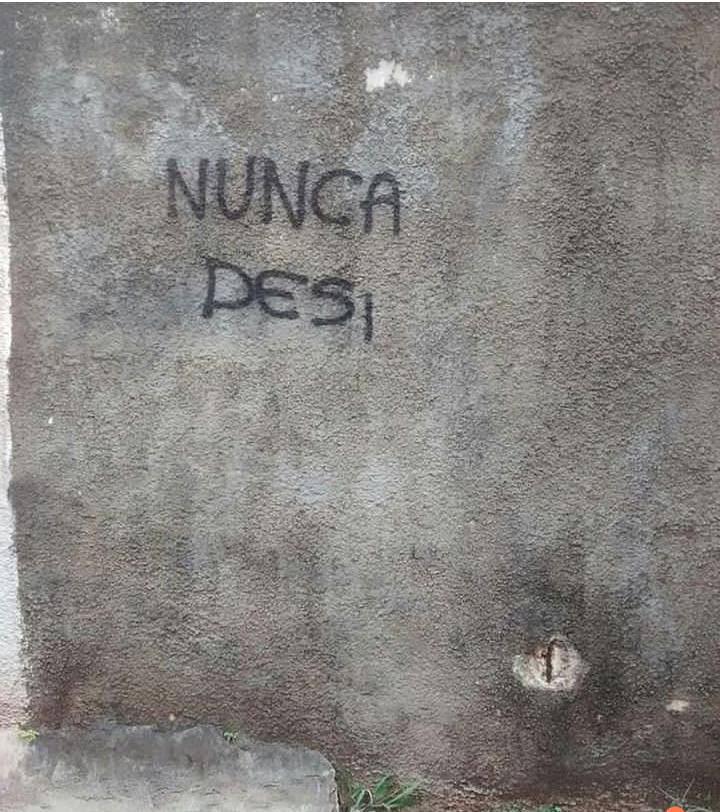 NUNCA
DESI